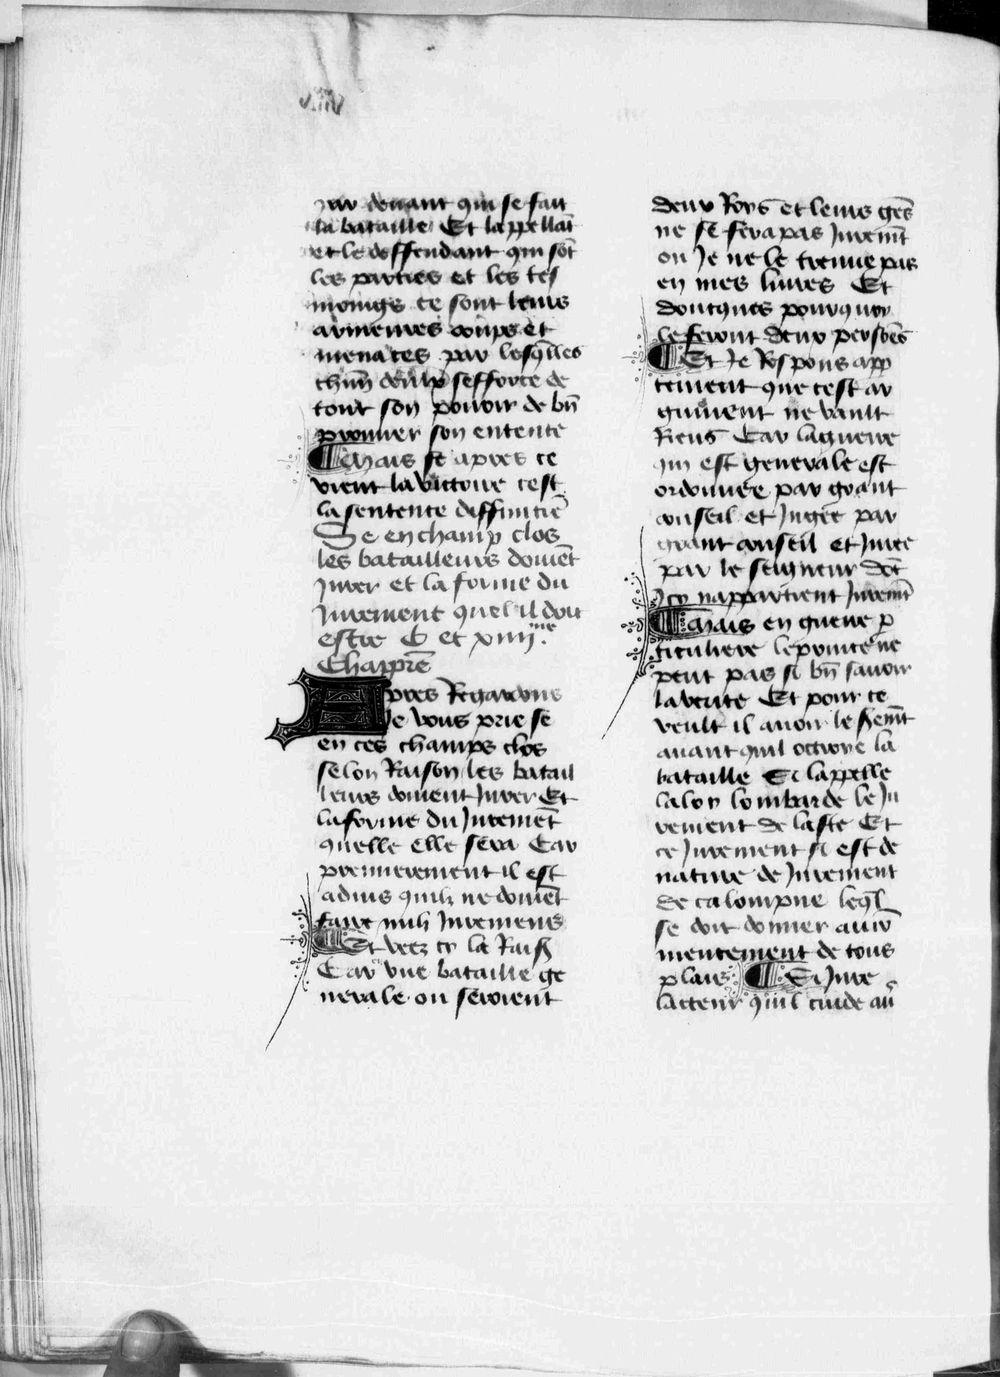 par deuant qui se fait
la bataille Et lappellãt
et le deffendant qui sõt
les parties et les tes
moings ce sont leurs
armeures coups et
menaces par lesq̃lles
chũn deulx sefforce de
tout son pouoir de bñ
prouuer son entente
¶ Mais se apres ce
vient la victoire cest
la sentence diffinitiũe
Se en champ clos
les batailleurs doiuẽt
Jurer et la forme du
Jurement quel il doit
estre C et xiiij.me
Chappr̃e
Apres Regardons
Je vous prie se
en ces champs clos
selon Raison les batail
leurs doiuent Jurer Et
la forme du Juremẽt
quelle elle sera Car
premierement il est
aduis quilz ne doiuẽt
faire nulz Juremens
¶ Et veez cy la Raisõ
Car vne bataille ge
nerale ou seroient
deux Roys et leurs gẽs
ne se fera pas Juremẽt
ou Je ne le treuue pas
en mes liures Et
doncques pourquoy
le feront deux persõnes
¶ Et Je Respons app
tement que cest ar
gument ne vault
Riens Car la guerre
qui est generale est
ordonnee par grant
conseil et Jugee par
grant conseil et Juree
par le seigneur dõt
Icy nappartient Juremẽt
¶ Mais en guerre p
ticuliere le prince ne
peut pas si bñ sauoir
la verite Et pour ce
veult il auoir le sermẽt
auant quil octroye la
bataille Si lappelle
la loy lombarde le Ju
rement de laste Et
ce Jurement si est de
nature de Jurement
de calompne leq̃l
se doit donner au cõ
mencement de tous
plais ¶ Si Jure
lacteur quil cuide auõ